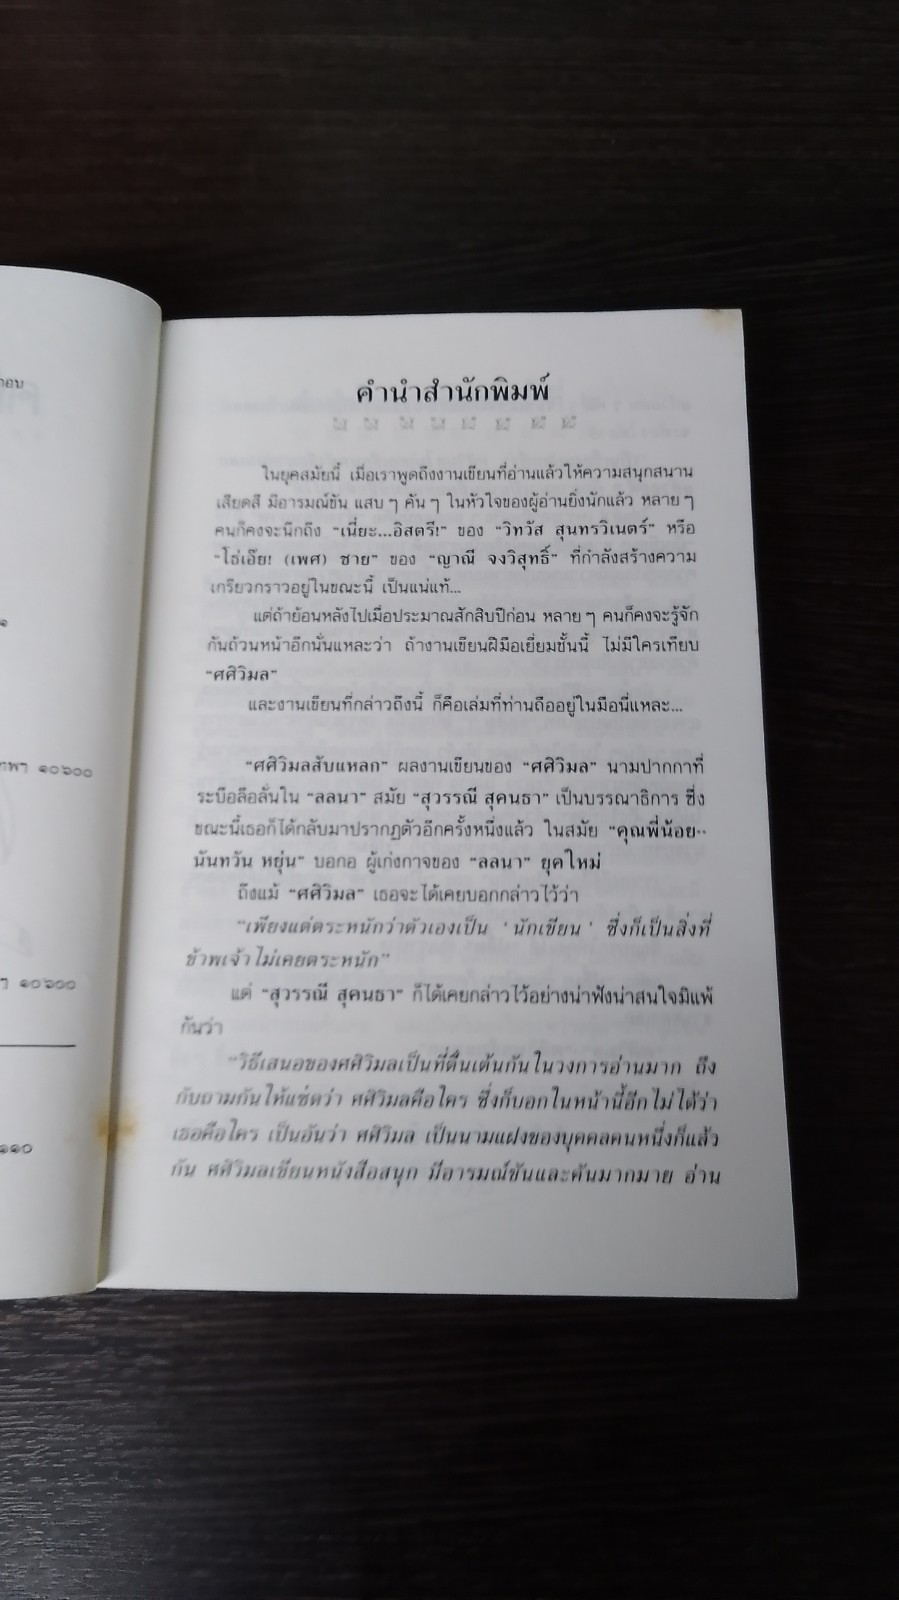 คำนำสำนักพิมพ์
ในยุคสมัยนี้ เมื่อเราพูดถึงงานเขียนที่อ่านแล้วให้ความสนุกสนาน
เสียดสี มีอารมณ์ขัน แสบ ๆ คัน ๆ ในหัวใจของผู้อ่านยิ่งนักแล้ว หลาย ๆ
คนก็คงจะนึกถึง "เนี่ยะ...อิสตรี!" ของ "วิทวัส สุนทรวิเนตร์" หรือ
"โธ่เอ๊ย! (เพศ) ชาย" ของ "ญาณี จงวิสุทธิ์" ที่กำลังสร้างความ
เกรียวกราวอยู่ในขณะนี้ เป็นแน่แท้...
แต่ถ้าย้อนหลังไปเมื่อประมาณสักสิบปีก่อน หลาย ๆ คนก็คงจะรู้จัก
กันถ้วนหน้าอีกนั่นแหละว่า ถ้างานเขียนฝีมือเยี่ยมชั้นนี้ ไม่มีใครเทียบ
"ศศิวิมล"
และงานเขียนที่กล่าวถึงนี้ ก็คือเล่มที่ท่านถืออยู่ในมือนี่แหละ...
"ศศิวิมลสับแหลก" ผลงานเขียนของ "ศศิวิมล" นามปากกาที่
ระบือลือลั่นใน "ลลนา" สมัย "สุวรรณี สุคนธา" เป็นบรรณาธิการ ซึ่ง
ขณะนี้เธอก็ได้กลับมาปรากฏตัวอีกครั้งหนึ่งแล้ว ในสมัย "คุณพี่น้อย--
นันทวัน หยุ่น" บอกอ ผู้เก่งกาจของ "ลลนา" ยุคใหม่
ถึงแม้ "ศศิวิมล" เธอจะได้เคยบอกกล่าวไว้ว่า
"เพียงแต่ตระหนักว่าตัวเองเป็น 'นักเขียน' ซึ่งก็เป็นสิ่งที่
ข้าพเจ้าไม่เคยตระหนัก"
แต่ "สุวรรณี สุคนธา" ก็ได้เคยกล่าวไว้อย่างน่าฟังน่าสนใจมิแพ้
กันว่า
"วิธีเสนอของศศิวิมลเป็นที่ตื่นเต้นกันในวงการอ่านมาก ถึง
กับถามกันให้แซ่ดว่า ศศิวิมลคือใคร ซึ่งก็บอกในหน้านี้อีกไม่ได้ว่า
เธอคือใคร เป็นอันว่า ศศิวิมล เป็นนามแฝงของบุคคลคนหนึ่งก็แล้ว
กัน ศศิวิมลเขียนหนังสือสนุก มีอารมณ์ขันและคันมากมาย อ่าน
๑๐๖๐๐
๑๐๖๐๐
๑๑๐